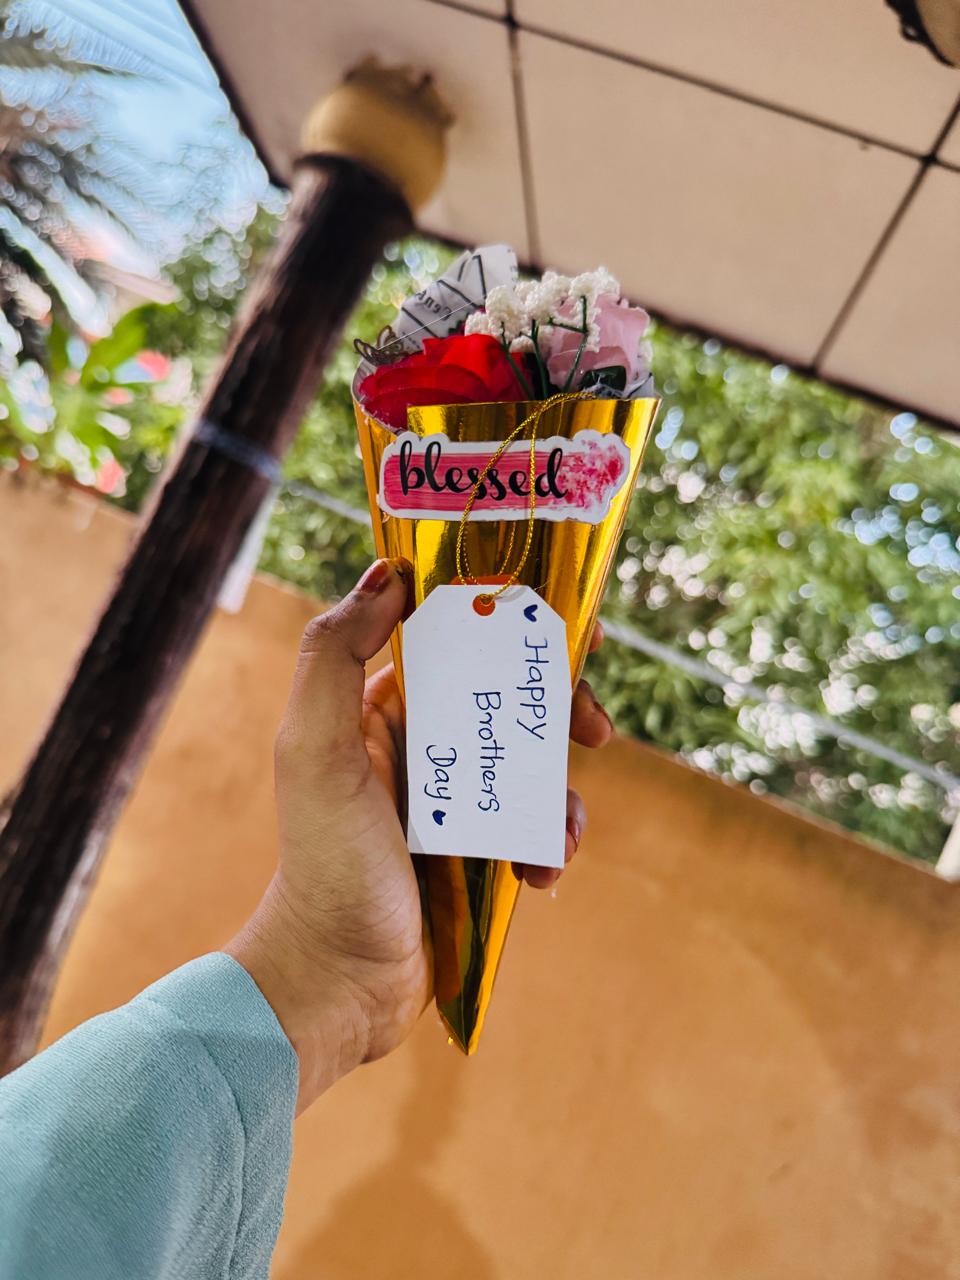 blessed
Happy
Brothers
Day